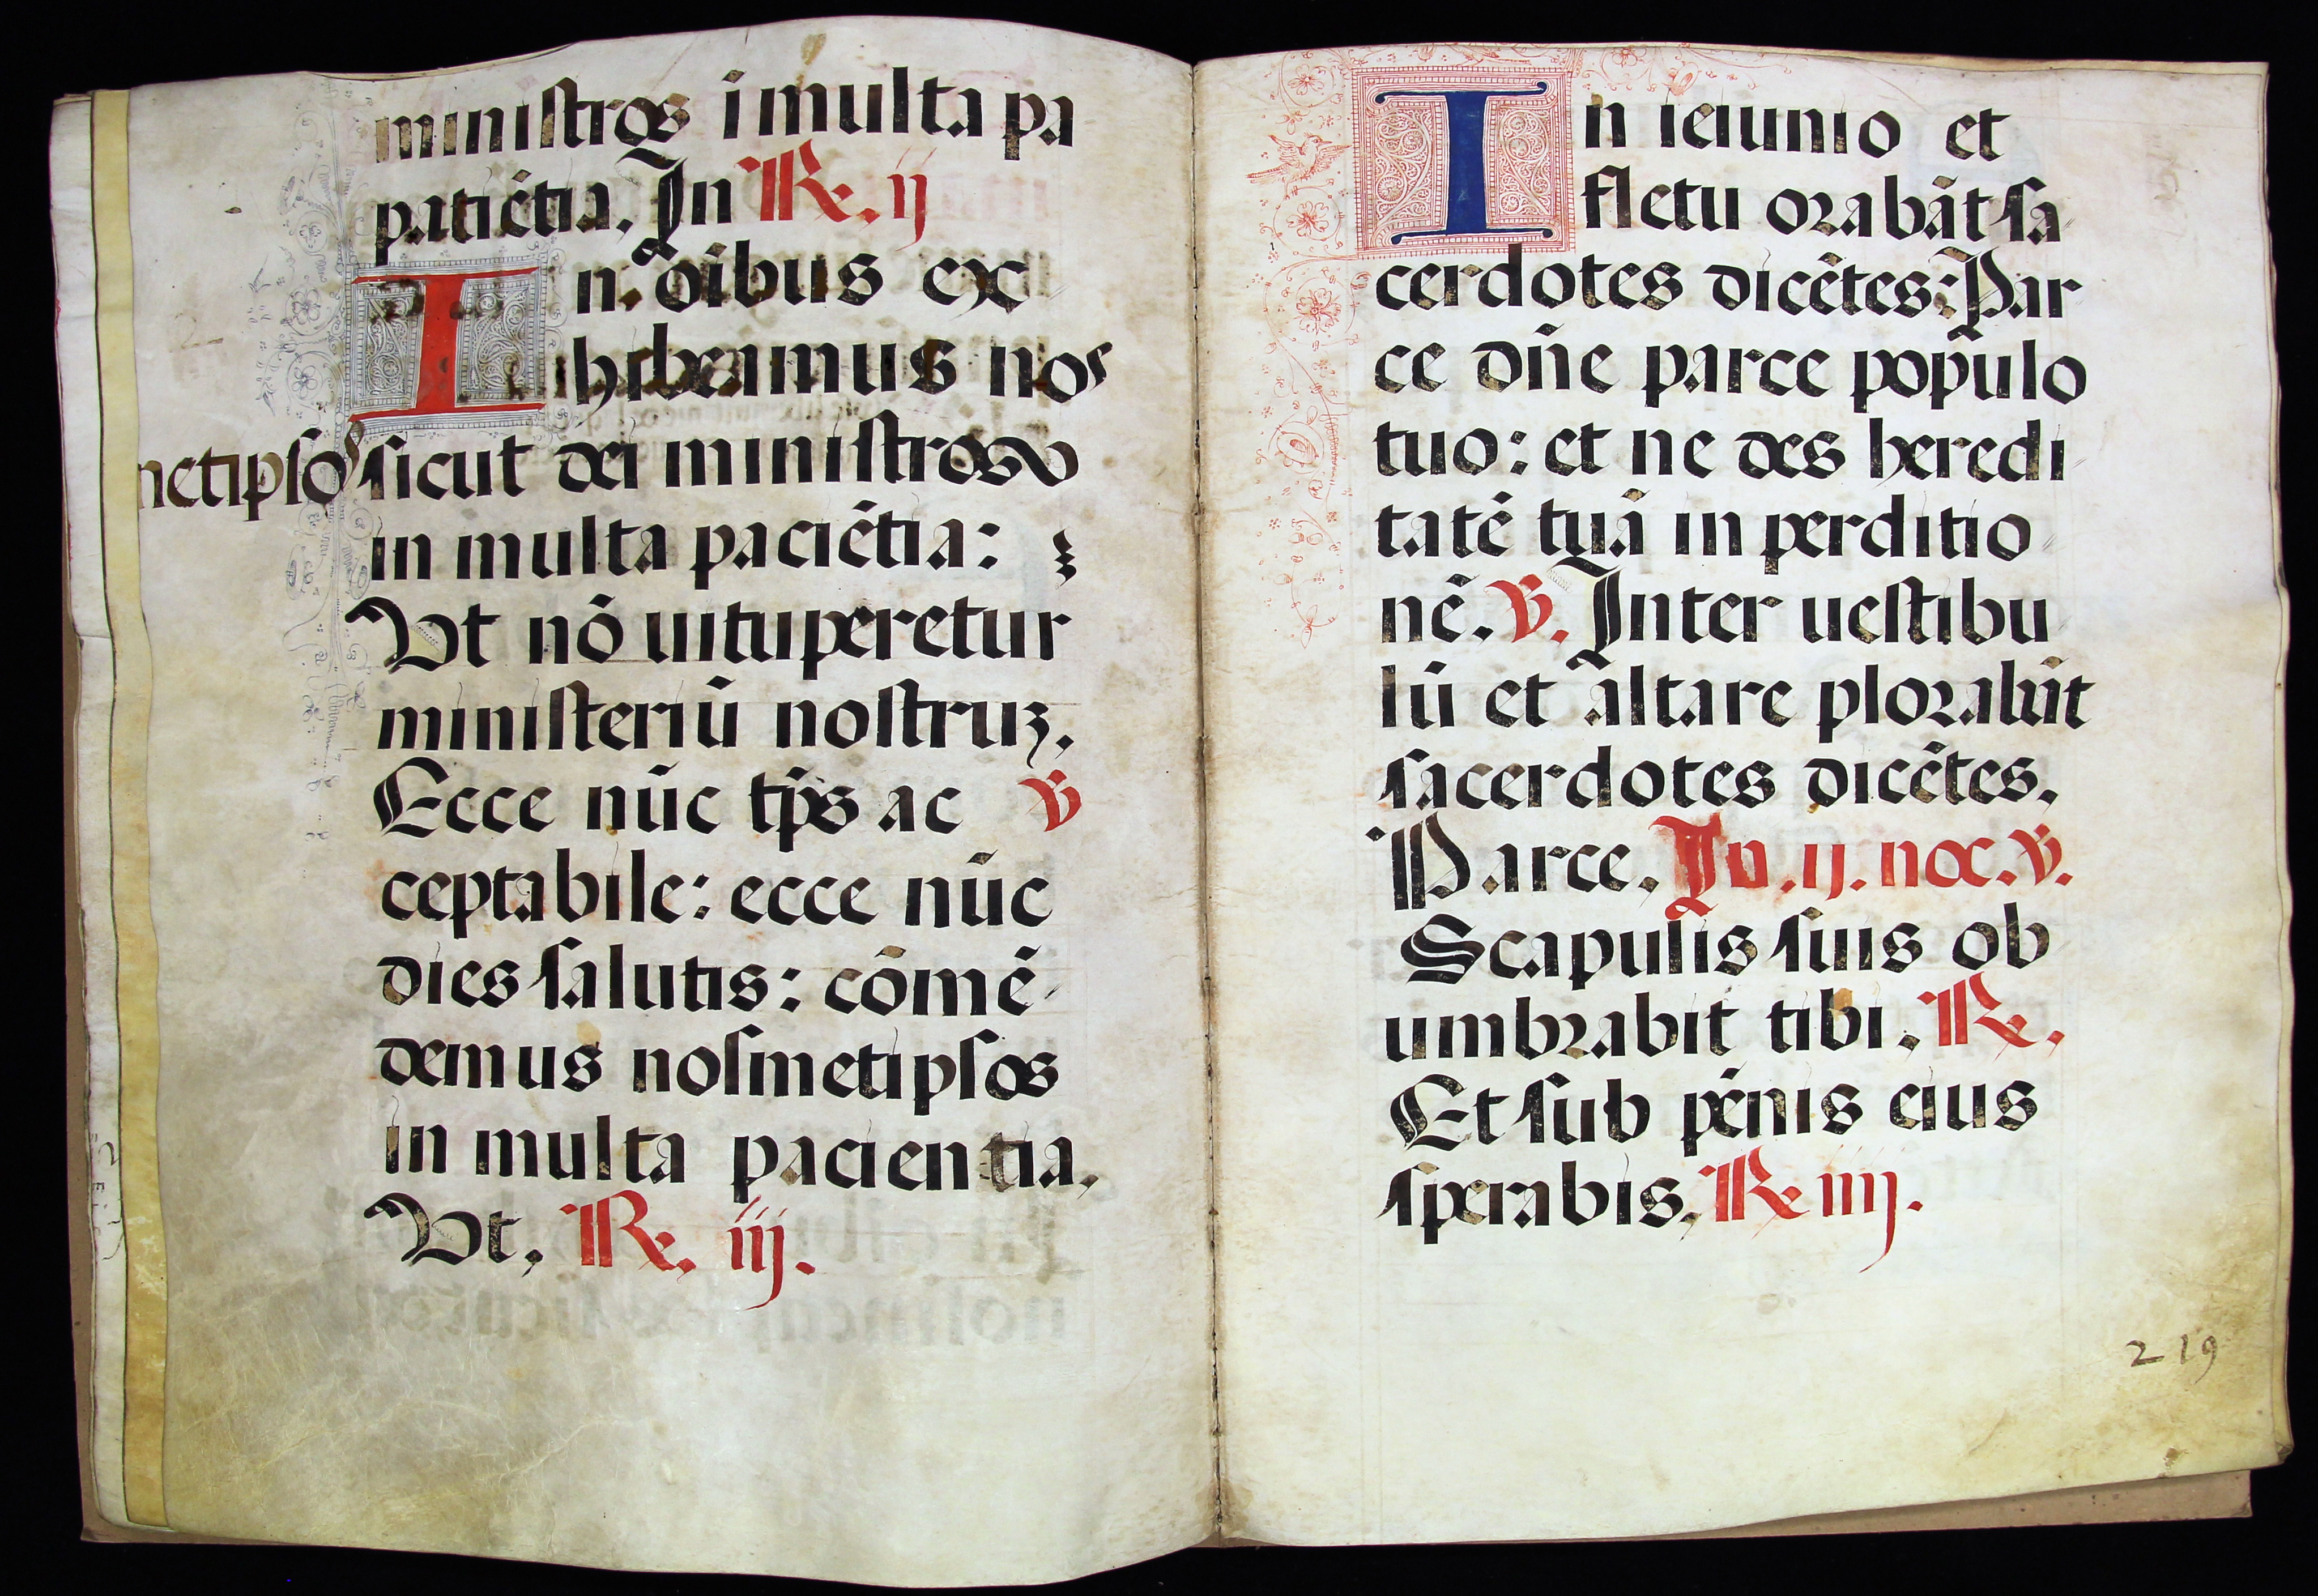 ministros i multa pa
patiētia. In ℟. ij
In oībus ex
hibeamus nos
netipsos sicut dei ministros
in multa paciētia:
Vt nō uituperetur
ministeriū nostruꝫ.
Ecce nūc tp̄s ac ℣
ceptabile: ecce nūc
dies salutis: cōmē
demus nosmetipsos
in multa pacientia.
Vt. ℟. iij.
In ieiunio et
fletu orabāt sa
cerdotes dicētes: Par
ce dn̄e parce populo
tuo: et ne des heredi
tatē tuā in perditio
nē. ℣. Inter uestibu
lū et altare plorabūt
sacerdotes dicētes.
Parce. In .ij. noc. ℣.
Scapulis suis ob
umbrabit tibi. ℟.
Et sub pēnis eius
sperabis. ℟ iiij.
219